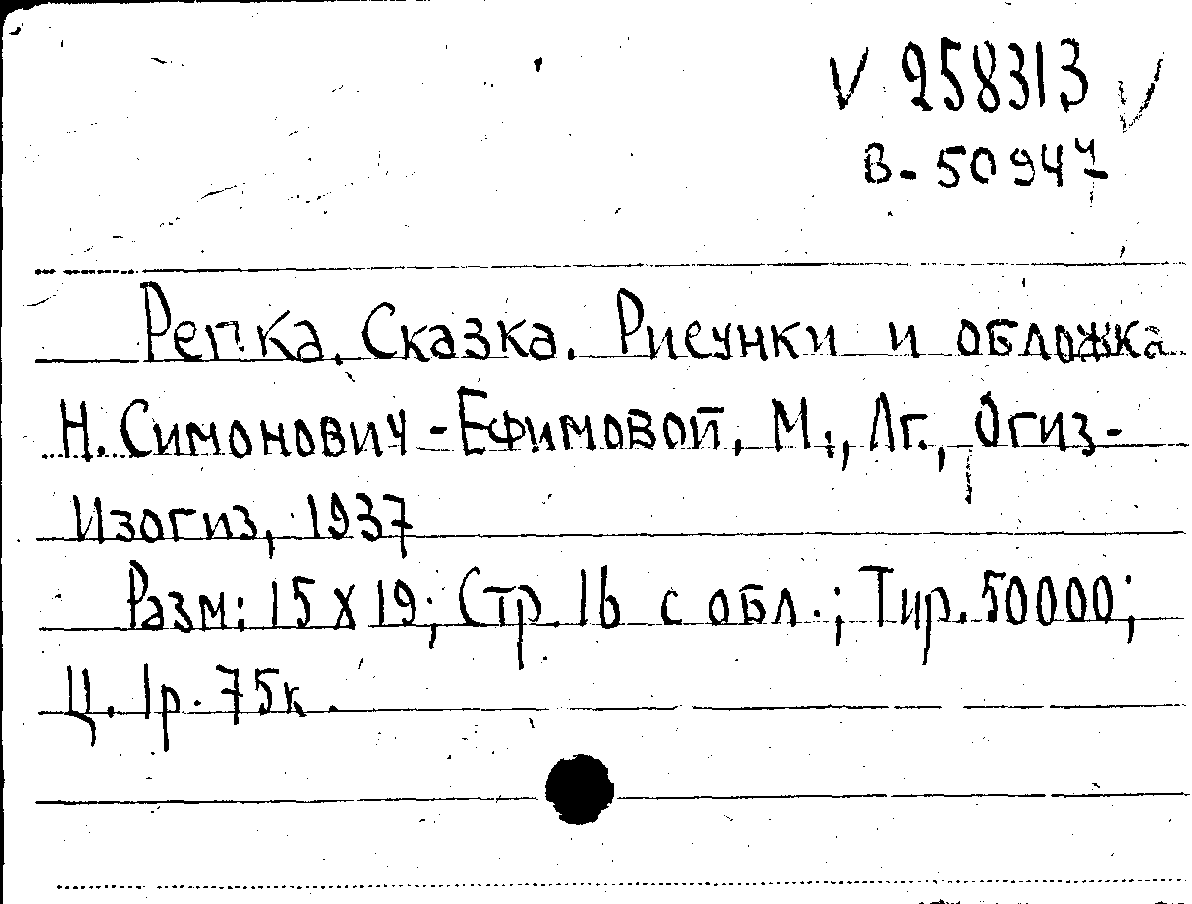 V 258313 V
В-50947
Репка. Сказка. Рисунки и обложка
Н. Симонович-Ефимовой. М., Лг., Огиз-
Изогиз, 1937
Разм: 15 х 19; Стр. 16 с обл.; Тир. 50000;
Ц. 1р. 75к.